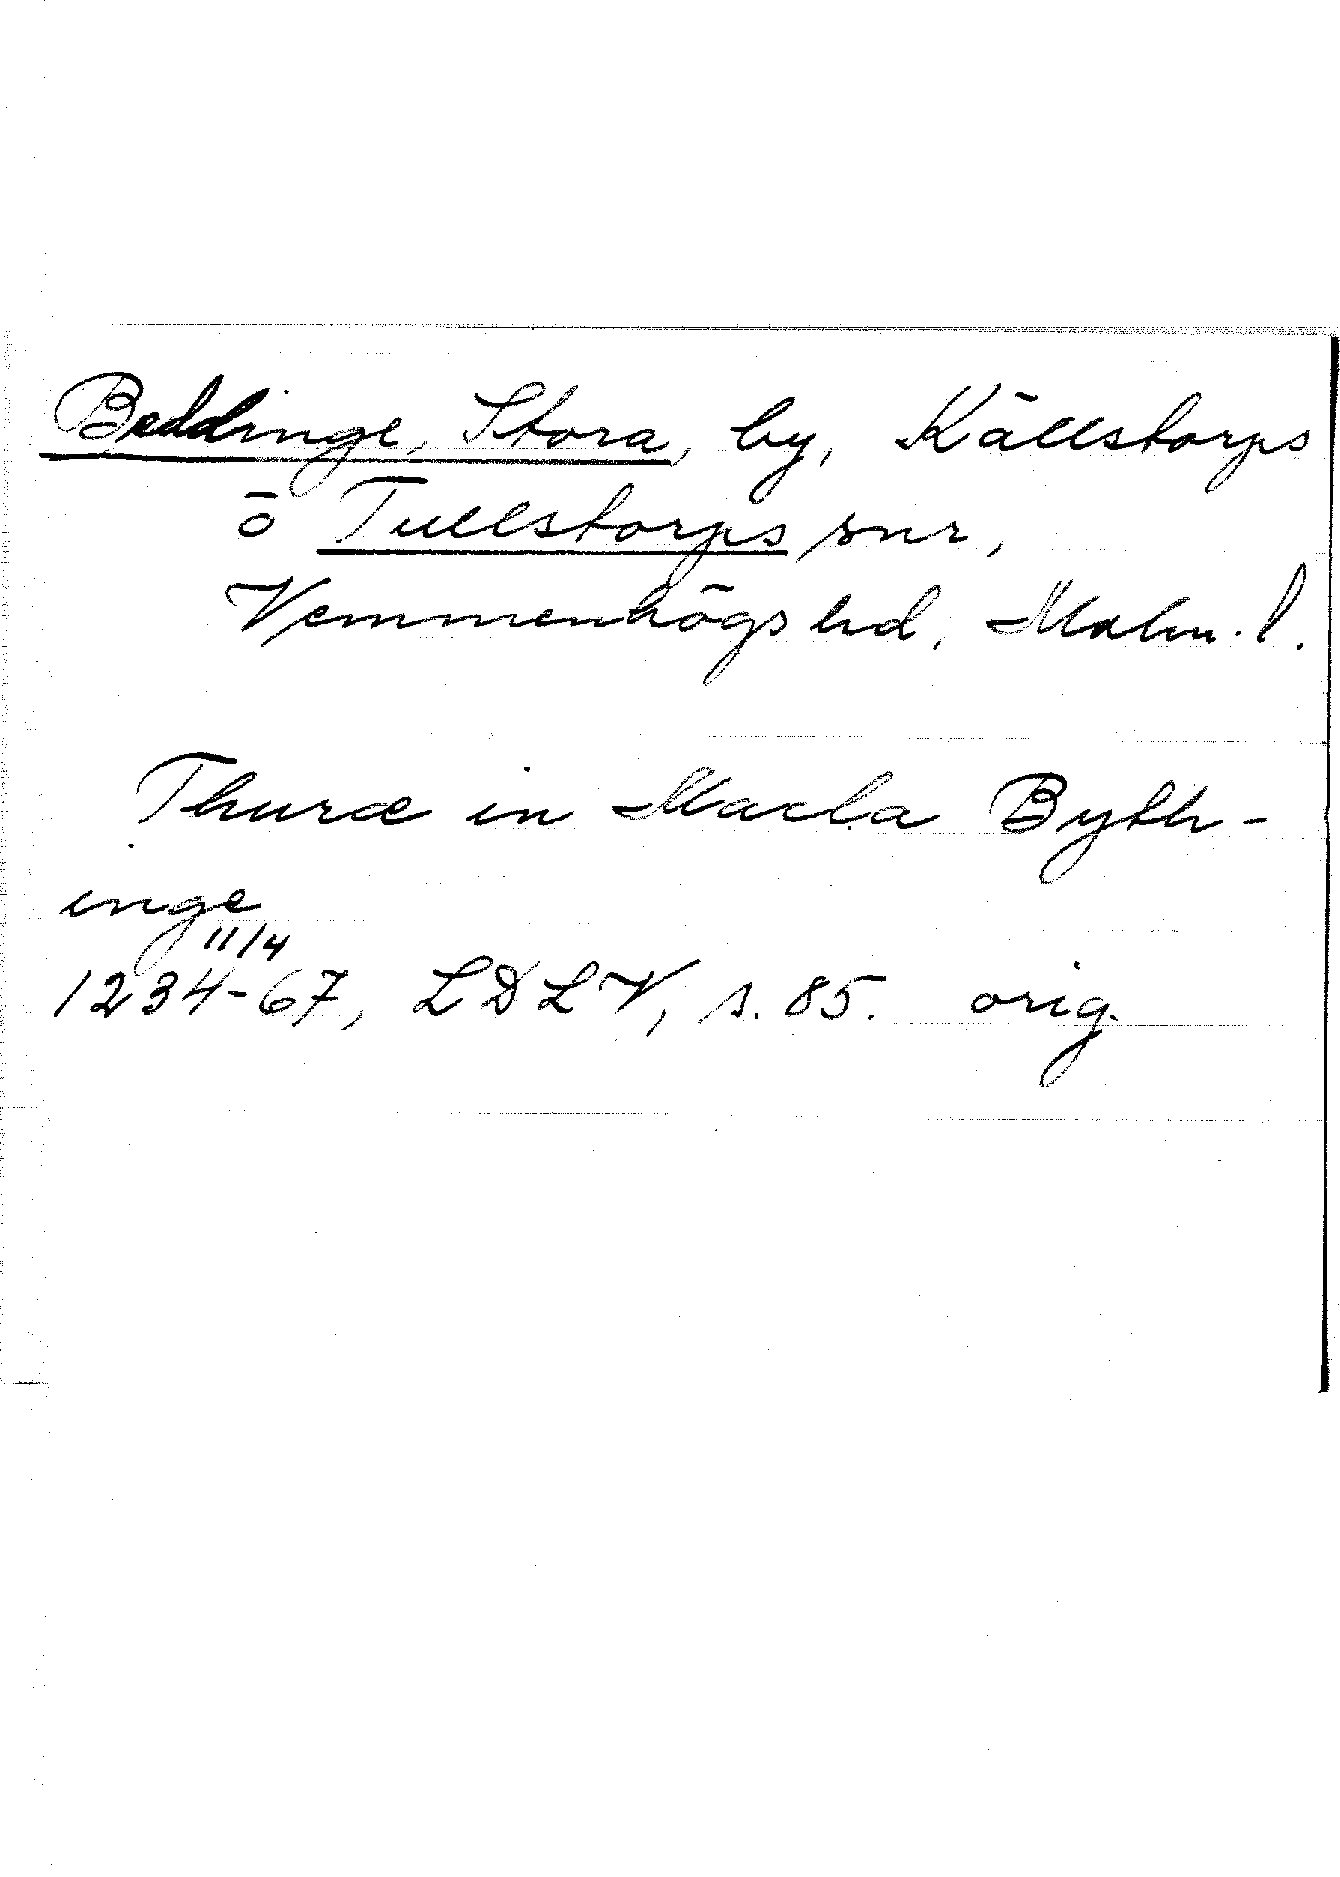 Beddinge, Stora, by, Källstorps
o Tullstorps snr,
Vemmenhögs hd, Malm. l.
Thuræ in Macla Byth-
inge
11/4
1234-67, LDLV, s. 85. orig.